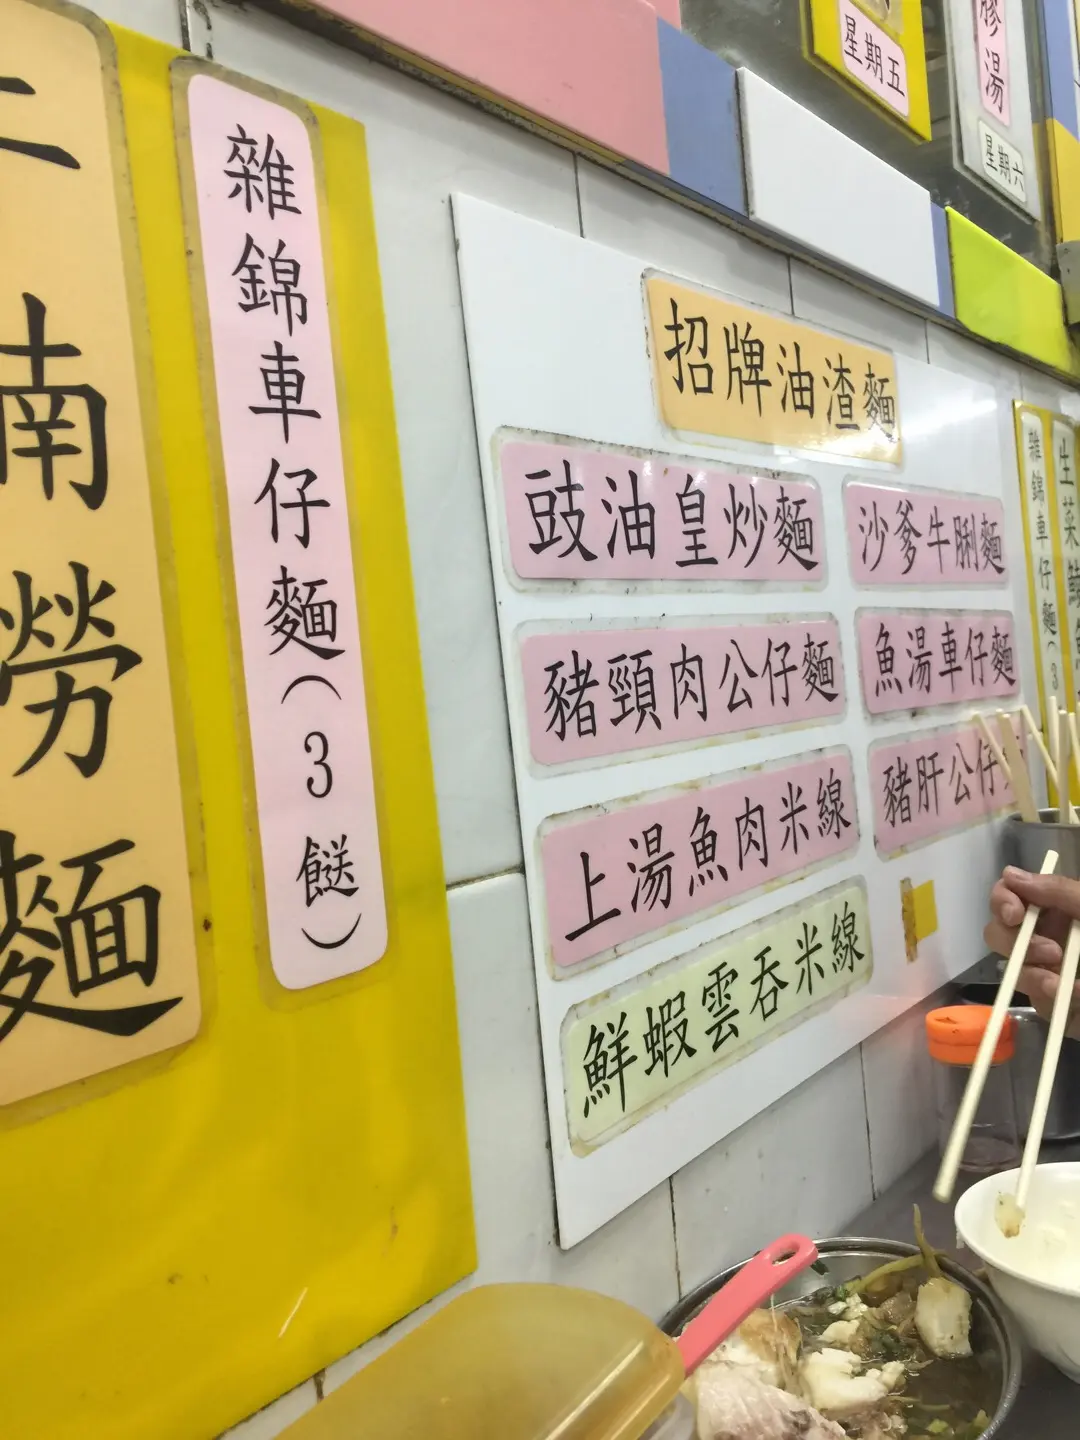 南勞麵
雜錦車仔麵(3餸)
星期五
膠湯
星期六
招牌油渣麵
豉油皇炒麵
沙爹牛脷麵
豬頸肉公仔麵
魚湯車仔麵
上湯魚肉米線
豬肝公仔
鮮蝦雲吞米線
雜錦車仔麵(3
生菜鯪魚